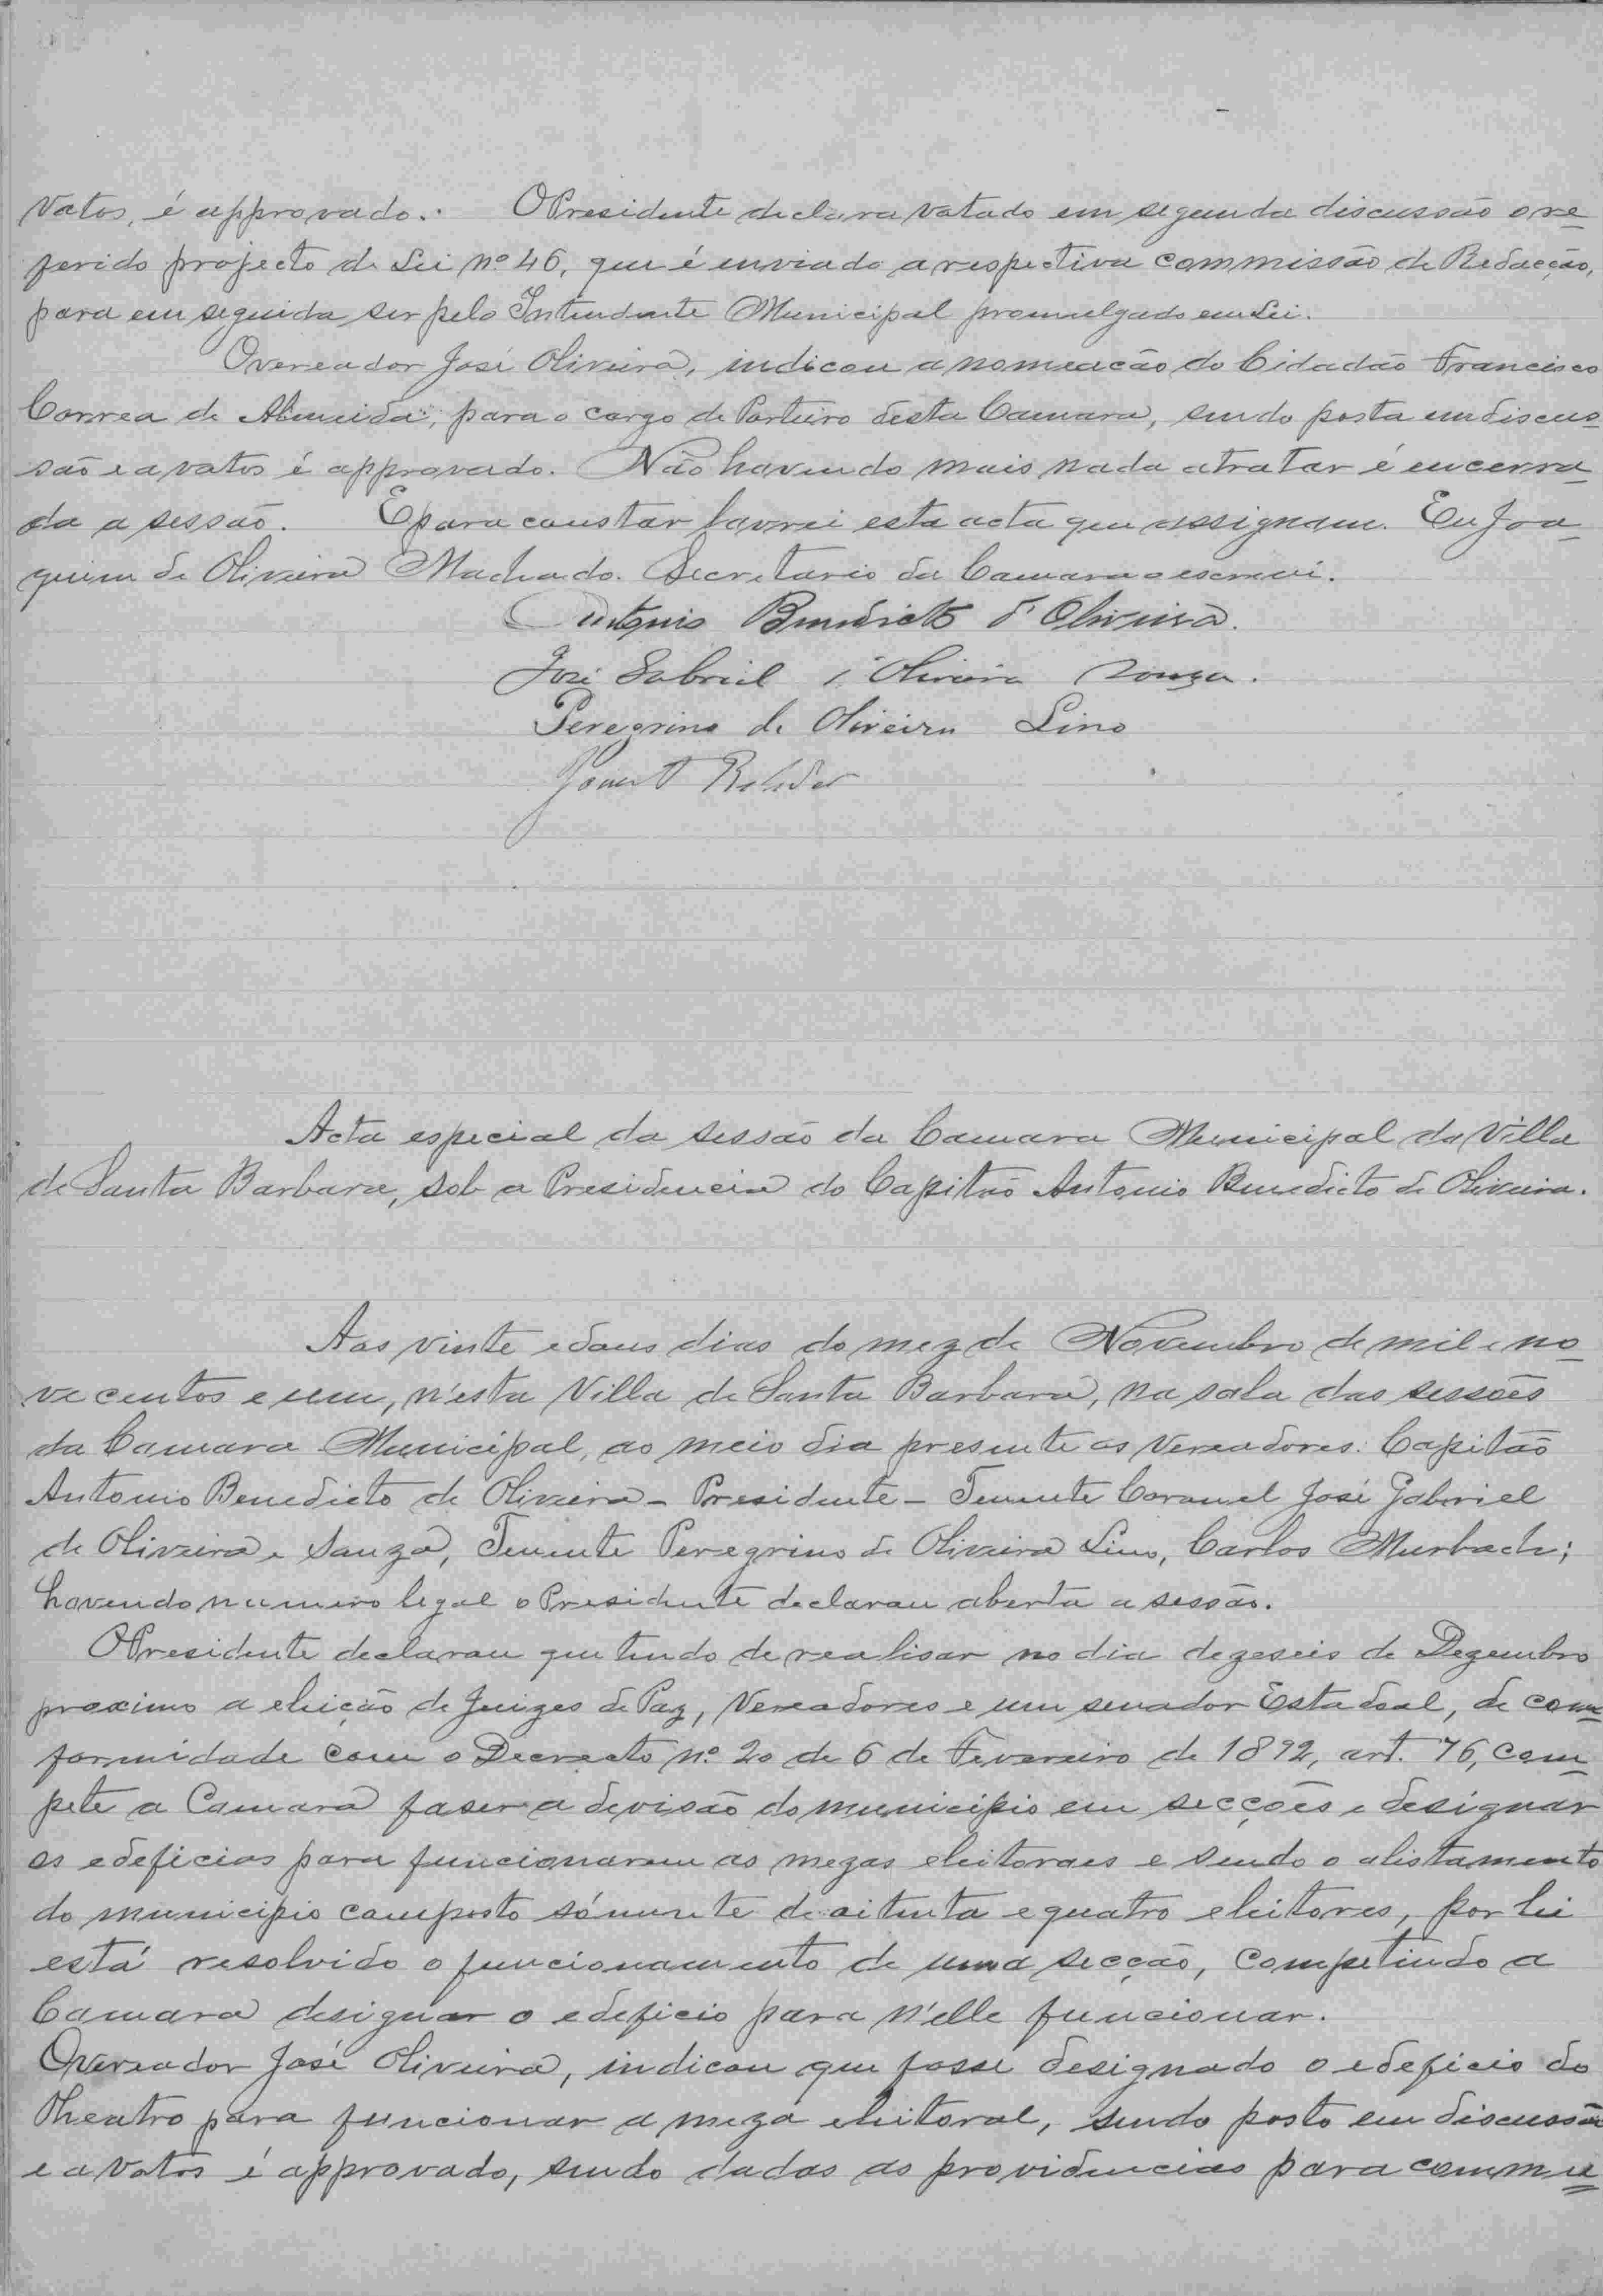 votos, é approvado. O Presidente declara votado em segunda discussão o re-
ferido projecto de Lei nº 46, que é enviado a respectiva commissão de Redacção,
para em seguida ser pelo Intendente Municipal promulgado em Lei.
O vereador José Oliveira, indicou a nomeacão do Cidadão Francisco
Correa de Almeida, para o cargo de Porteiro desta Camara, sendo posta em discus-
são e a votos é approvado. Não havendo mais nada a tratar é encerra-
da a sessão. E para constar lavrei esta acta que assignam. Eu Joa-
quim de Oliveira Machado. Secretario da Camara o escrevi.
Antonio Benedicto d'Oliveira.
José Gabriel d'Oliveira Souza.
Peregrino de Oliveira Lino
Acta especial da sessão da Camara Municipal da Villa
de Santa Barbara, sob a Presidencia do Capitão Antonio Benedicto de Oliveira.
Aos vinte e dous dias do mez de Novembro de mil e no-
ve centos e um, n'esta Villa de Santa Barbara, na sala das sessões
da Camara Municipal, ao meio dia presente os Vereadores. Capitão
Antonio Benedicto de Oliveira - Presidente - Tenente Coronel José Gabriel
de Oliveira e Souza, Tenente Peregrino de Oliveira Lino, Carlos Murbach;
havendo numero legal o Presidente declarou aberta a sessão.
O Presidente declarou que tendo de realisar no dia dezeseis de Dezembro
proximo a eleição de Juizes de Paz, Vereadores e um senador Estadoal, de con-
formidade com o Decrecto nº 20 de 6 de Fevereiro de 1892, art. 76, com-
pete a Camara faser a devisão do municipio em secções e designar
os edeficios para funcionarem as mezas eleitoraes e sendo o alistamento
do municipio composto sómente de oitenta e quatro eleitores, por lei
está resolvido o funcionamento de uma secção, competindo a
Camara designar o edeficio para n'elle funcionar.
O vereador José Oliveira, indicou que fosse designado o edeficio do
Theatro para funcionar a meza eleitoral, sendo posto em discussão
e a votos é approvado, sendo dadas as providencias para commu=